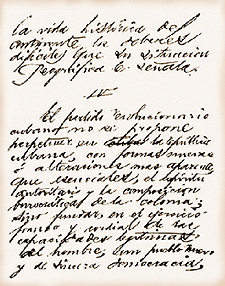 la vida histórica del
continente los deberes
difíciles que su situación
geográfica le señala.
IV
El partido revolucionario
cubano no se propone
perpetuar en la república
cubana, con formas nuevas
o alteraciones mas aparentes
que esenciales, el espíritu
autoritario y la composición
burocrática de la colonia,
sino fundar en el ejercicio
franco y cordial de las
capacidades legítimas
del hombre, un pueblo nuevo
y de sincera democracia,